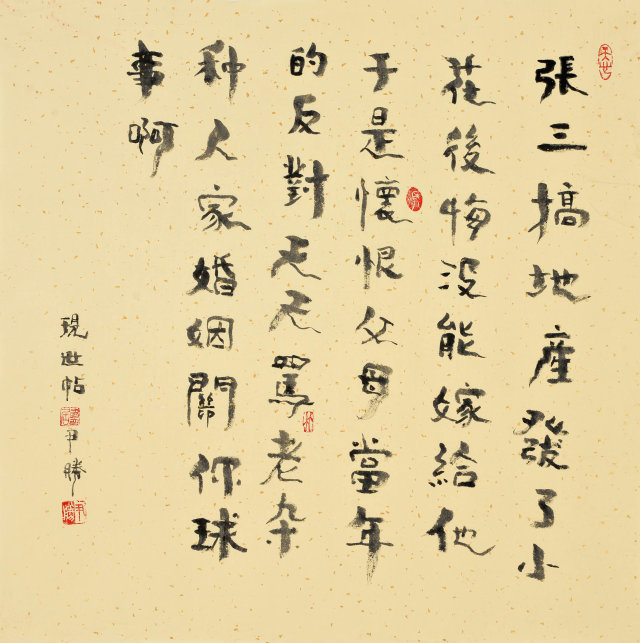 張三搞地產發了小
花後悔没能嫁給他
于是懷恨父母當年
的反對天天罵老杂
种人家婚姻關你球
事啊
現世帖 尹勝